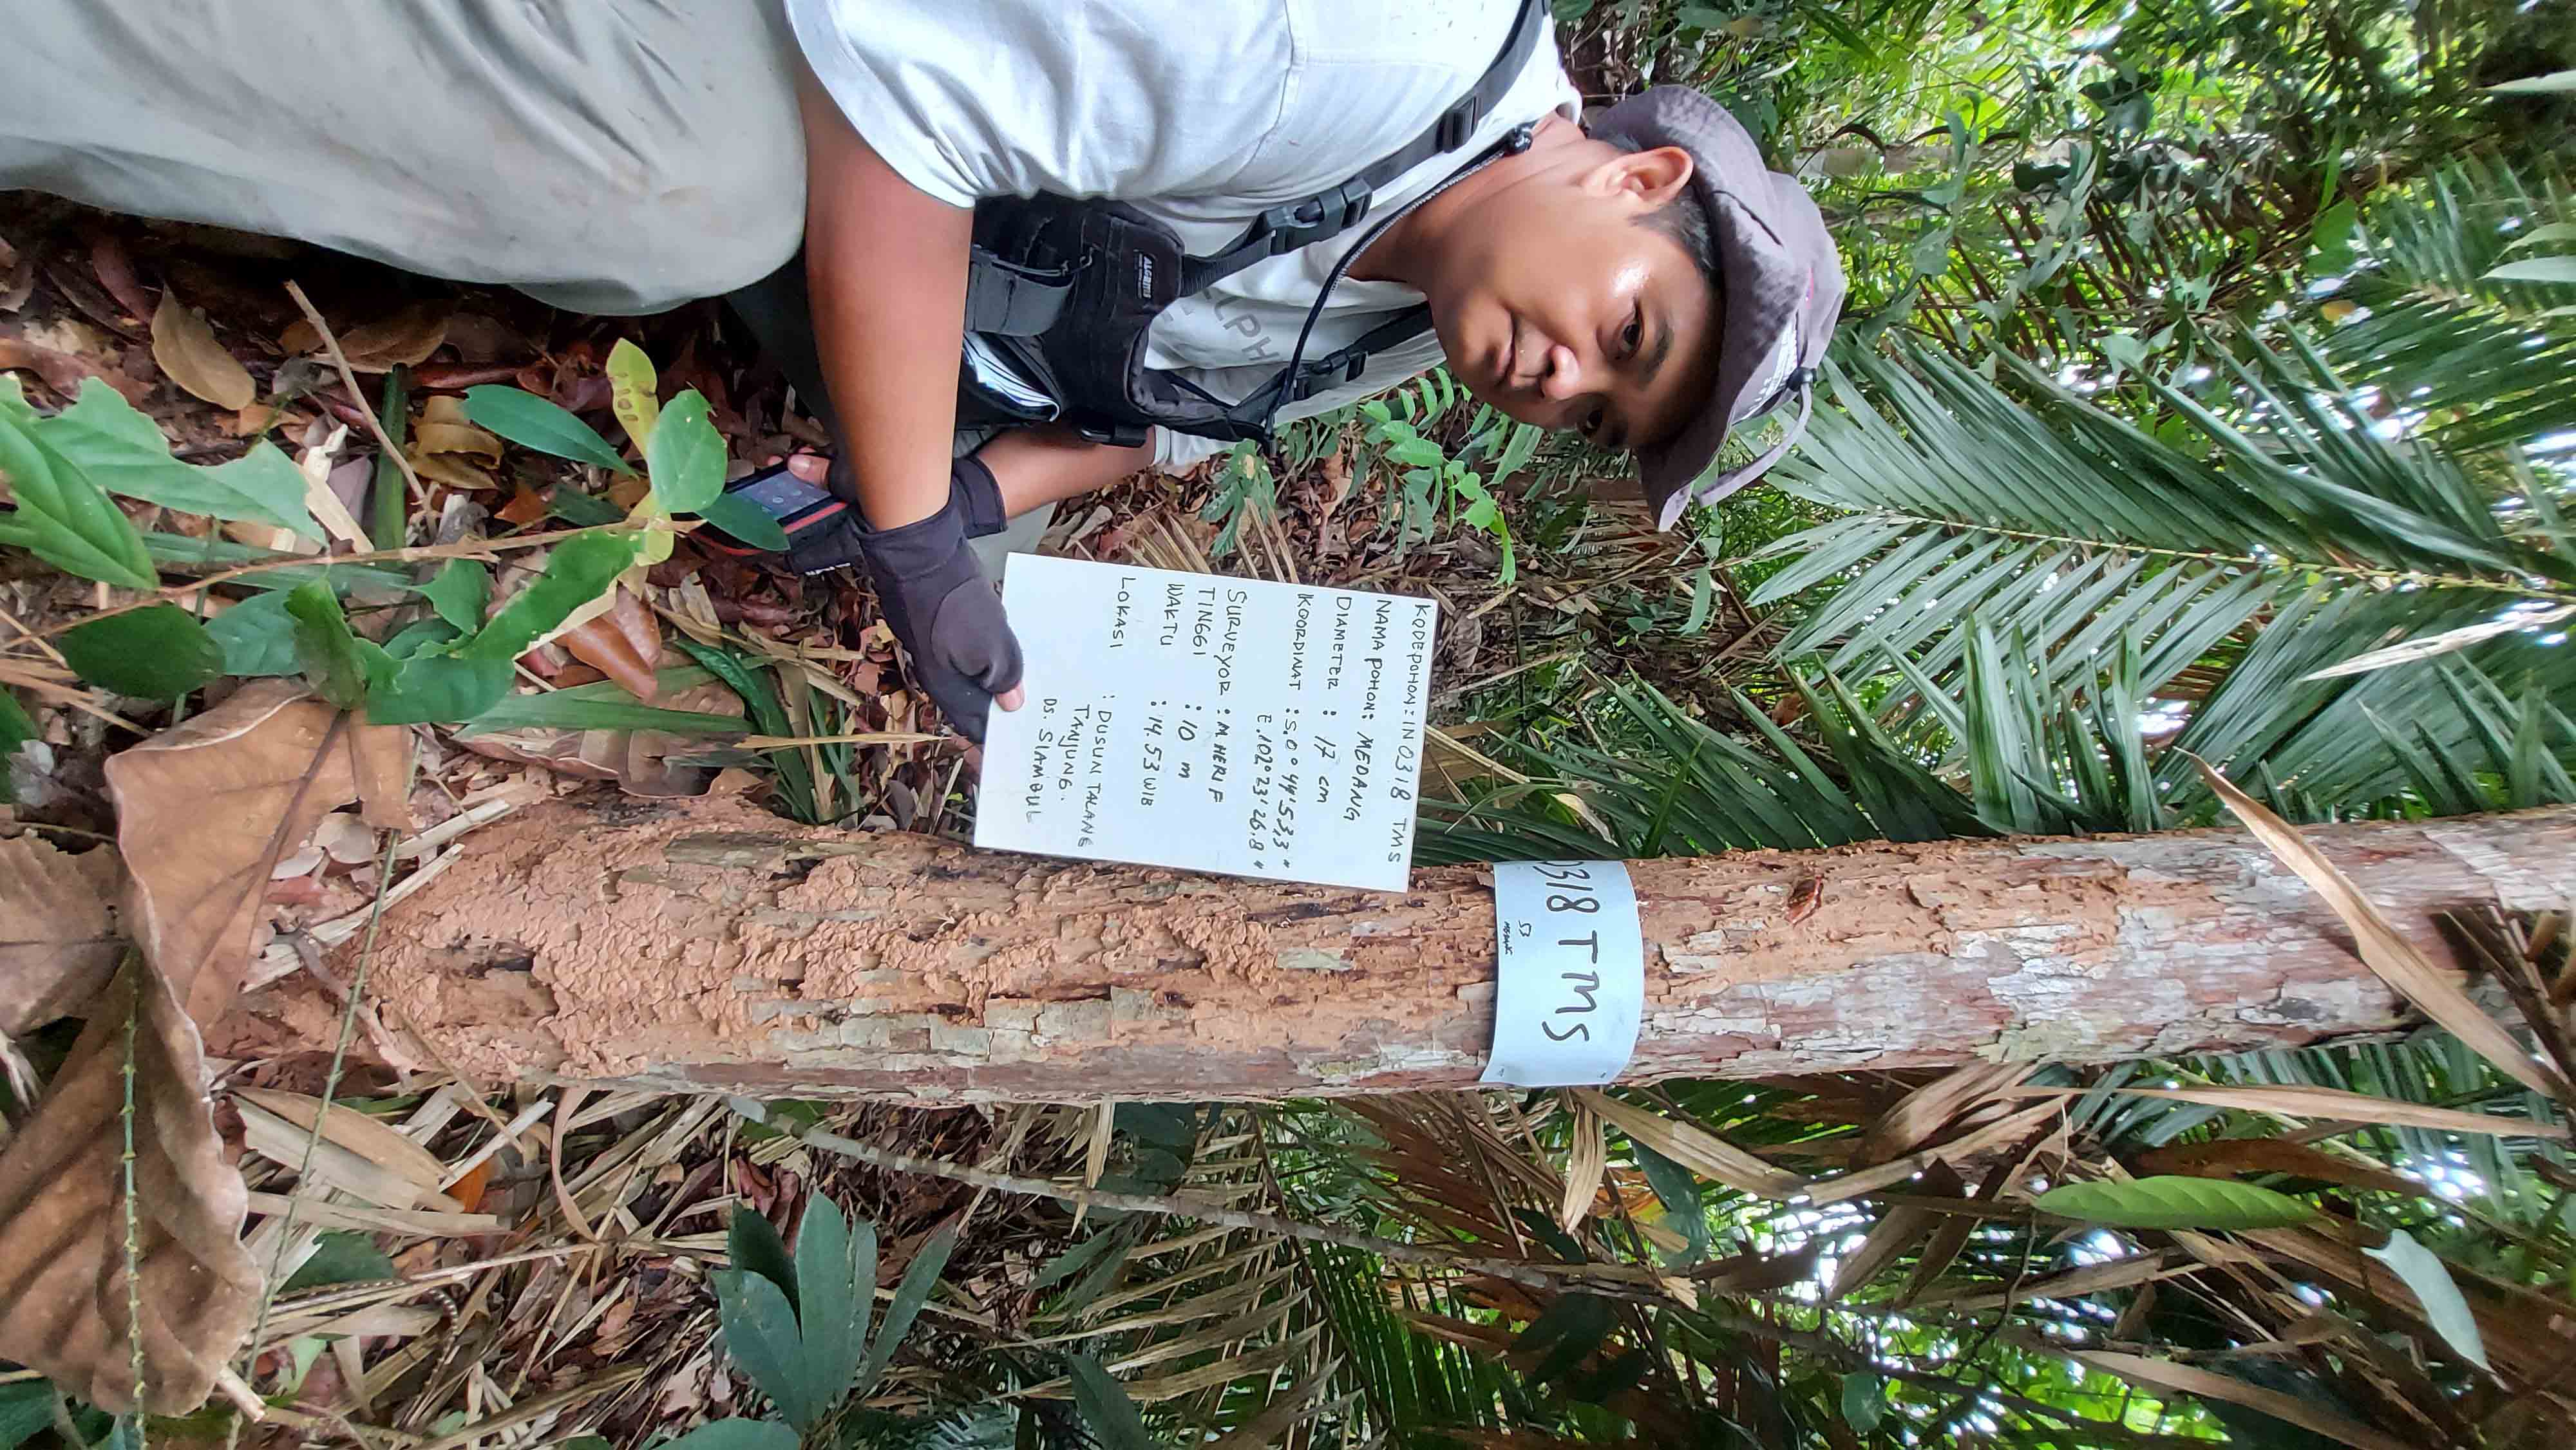 0318 TMS
53
MEDANG
KODE POHON : IN 0318 TMS
NAMA POHON : MEDANG
DIAMETER : 17 cm
KOORDINAT : S.0° 44' 53,3"
E.102° 23' 26.8"
SURVEYOR : M HERI F
TINGGI : 10 m
WAKTU : 14.53 WIB
LOKASI : DUSUN TALANG
TANJUNG.
DS. SIAMBUL